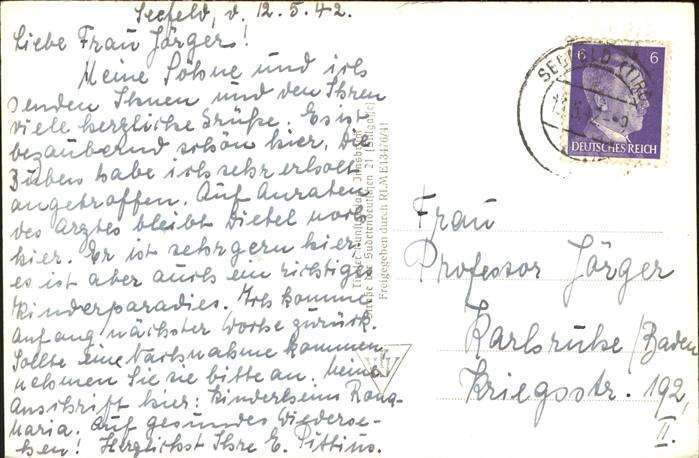 Seefeld, d. 12.5.42.
Liebe Frau Jörger!
Meine Söhne und ich
senden Ihnen und den Ihren
viele herzliche Grüße. Es ist
bezaubernd schön hier. Die
Buben habe ich sehr erholt
angetroffen. Auf Anraten
des Arztes bleibt Dietel noch
hier. Er ist sehr gern hier
es ist aber auch ein richtiges
Kinderparadies. Ich komme
Anfang nächster Woche zurück.
Sollte eine Nachnahme kommen,
nehmen Sie sie bitte an. Meine
Anschrift hier: Kinderheim
Maria. Auf gesundes Wiederse-
hen! Herzlichst Ihre E.
Tiroler Kunstverlag Innsbruck
Straße der Sudetendeutschen 21 (Stillgasse)
Freigegeben durch RLM E
SEEFELD (TIROL)
6 6
DEUTSCHES REICH
Frau
Professor Jörger
Karlsruhe/Baden
Kriegsstr. 192,
II.